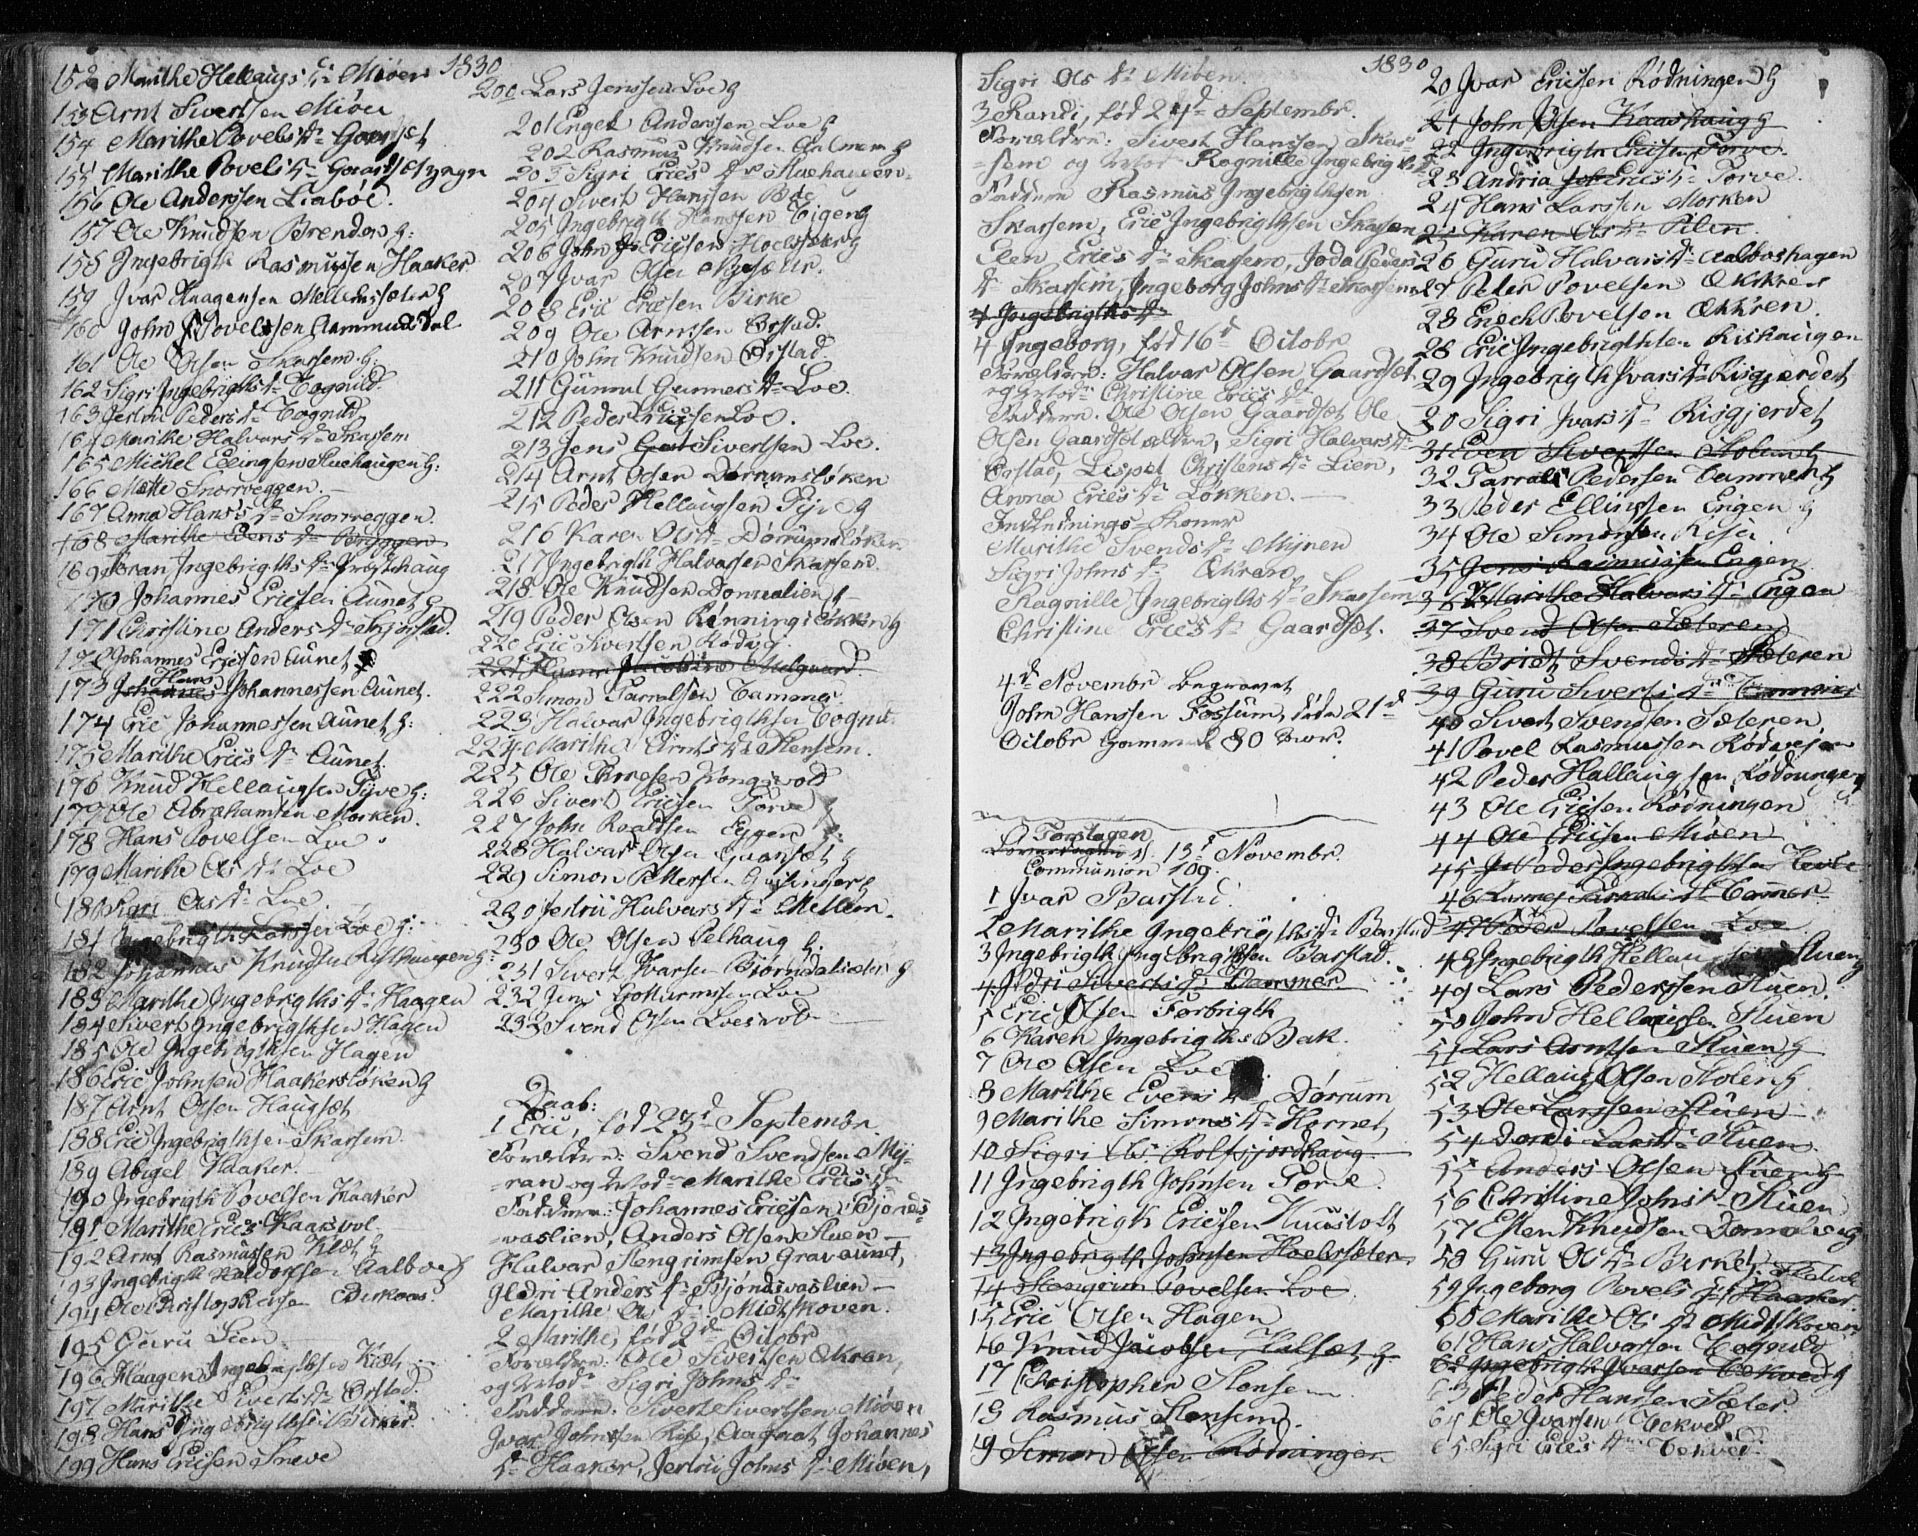 1830
152 Marithe Hellaugs dr Miöen
153 Arnt Sivertsen Miöen
154 Marithe Povels dr Gaardset
155 Marithe Povels dr Gaardset yngr
156 Ole Anderssen Liaböe.
157 Ole Knudsen Brenden g:
158 Ingebrigth Rasmussen Haaker
159 Ivar Haagensen Mellemsæter g
160 John Povelssen Aammuddal
161 Ole Olsen Skarsem g:
162 Sigri Ingebrigths dr Tognild.
163 Jertru Peders dr Tognild
164 Marithe Halvars dr Skarsem
165 Michel Ellingsen Stuehaugen g:
166 Mette Snorreggen.
167 Anna Hans's dr Snorreggen.
168 Marithe Svens dr Bryggen
169 Ingebrigths dr
170 Johannes Ericsen Aunet g
171 Christine Anders dr
172 Johannes Ericsen Aunet
173 Hans Johannessen Aunet.
174 Eric Johannessen Aunet g:
175 Marithe Erics dr Aunet
176 Knud Hellaugsen Fyve g:
177 Ole Abrahamsen Morken.
178 Hans Povelsen Loe
179 Marithe Ols dr Loe
180 Kari Ols dr Loe.
181 Ingebrigth Larssen Loe g:
182 Johannes Knudsen Risthaugen g:
183 Marithe Ingebrigths dr Haagen
184 Sivert Ingebrigthsen Hagen
185 Ole Ingebrigthsen Hagen
186 Eric Johnsen Haakersløken g
187 Arnt Olsen Haugset
188 Eric Ingebrigthsen Skarsem.
189 Abigel Haaker.
190 Ingebrigth Povelsen Haaker
191 Marithe Erics Kaasvol
192 Arnt Rasmussen Klæt g
193 Ingebrigth Haldorsen Aalboe g
194 Ole Christophersen Birkaas.
195 Guru Lien
196 Haagen Ingebrigthsen Klæt
197 Marithe Siverts dr Ørstad.
198 Hans Ingebrigthsen
199 Hans Ericsen Sneve
200 Lars Jenssen Loe g
201 Engel Anderssen Loe g
202 Rasmus Knudsen
203 Sigri Erics dr Stuehaugen.
204 Sivert Hanssen
205 Ingebrigth Hanssen Eigen g
206 John Ericsen Hoelsæter g
207 Ivar Olsen Nysætr.
208 Eric Ericsen Birke
209 Ole Arntsen Ørstad.
210 John Knudsen Ørstad.
211 Gunnul Gunners dr Loe.
212 Peder Ericssen Loe.
213 Jens Sivertsen Loe.
214 Arnt Olsen Dørrumsløken
215 Peder Hellaugsen Fyve g
216 Karen Ols dr Dørrumsløken
217 Ingebrigth Halvarsen Skarsem
218 Ole Knudsen Donvalien g
219 Peder Olsen Rønningsløkken g
220 Eric Sivertsen Rødvg.
221 Hanna Jacobine Mulgaard.
222 Simon Tarralsen Tammer
223 Halvar Ingebrigthsen Togni.
224 Marithe Arnts dr Stensem.
225 Ole Kongsvold
226 Sivert Ericsen Torve
227 John Roaldsen Eggen
228 Halvar Olsen g
229 Simon Pettersen g
230 Jertru Halvars dr Mellem.
230 Ole Olsen Pelhaug g:
231 Sivert Ivarsen Bjørndalsæter g
232 Jens Guttormssen Loe
232 Svend Olsen Loesvold
Daab:
1 Eric, fød 23d Septembr.
Forældre: Svend Svendsen My-
-ran og Modr Marithe Erics dr
Faddere: Johannes Ericsen Bjønds-
-vaslien, Anders Olsen Stuen
Halvar Stengrimsen Gravaunet,
Geldri Anders dr Bjøndsvaslien
Marithe Ols dr Midtskoven.
2 Marithe, fød 2d Octobr
Forældre: Ole Sivertsen Økran,
og Modr Sigri Johns dr
Faddere: Sivert Sivertsen Miöen
Ivar Johnsen Rise, Aagaat Johannes
dr Haaker, Jertru Johns dr Miöen,
1830
Sigri Ols dr Miöen.
3 Randi, fød 24d Septembr.
Forældre: Sivert Hanssen Skar-
-sem og Modr Ragnille Ingebrigths dr
Faddere Rasmus Ingebrigthsen
Skarsem, Eric Ingebrigthsen Skarsem
Elen Erics dr Skarsem, Joda Peders
dr Skarsem, Ingeborg Johns dr Skarsem
4 Ingebrigths dr
4 Ingeborg, fød 16d Octobr
Forældre: Halvar Olsen Gaardset
og Modr Christine Erics dr
Faddere. Ole Olsen Gaardset Ole
Olsen Gaardset ældre, Sigri Halvars dr
Ørstad, Lispet Christens dr Lien,
Anna Erics dr Løkken.
Indlednings-Koner
Marithe Svends dr Myren
Sigri Johns dr Økren
Ragnille Ingebrigths dr Skarsem
Christine Erics dr Gaardset.
4d Novembr begravet
John Hanssen Fossum, døde 21d
Octobr gammel 80 aar.
Torsdagen
d. 13d Novembr.
Communion 109.
1 Ivar Barstad
2 Marithe Ingebrigths dr Barstad
3 Ingebrigth Ingebrigthsen Barstad.
4 Siverts dr Tammer
5 Eric Olsen Forbrigth
6 Karen Ingebrigths Bak.
7 Ole Olsen Loe
8 Marithe Evens dr Dørrum
9 Marithe Simons dr Hornet
10 Sigri Ols Rolfsjordhaug
11 Ingebrigth Johnsen Torve.
12 Ingebrigth Ericsen
13 Ingebrigth Johnsen Hoelsæter
14 Stengrim Povelsen Loe
15 Eric Olsen Hagen
16 Knud Jacobsen Halset g
17 Christopher Stensem
18 Rasmus Stensem.
19 Simon Olsen Rødningen
20 Ivar Ericsen Rødningen g
21 John Olsen Kaashaug g
22 Ingebrigth Ericsen Torve.
23 Andria Erics dr Torve.
24 Hans Larssen Morken
25 Karen Ols dr Pilen
26 Guru Halvars dr Aalboshagen
27 Peder Povelsen Økkren
28 Enoch Povelsen Økkren.
28 Eric Ingebrigthsen Rishaugen
29 Ingebrigth Ivars dr Risgjerdet
30 Sigri Ivars dr Risgjerdet
31 Even Sivertsen Holum g
32 Tarrald Pedersen Tammer g
33 Peder Ellingsen Engen g
34 Ole Simonsen Risa
35 Jens Rasmussen Engen
36 Marithe Halvars dr Engen
37 Svend Olsen Sæteren
38 Bridt Svends dr Sæteren
39 Guru Siverts dr
40 Sivert Svendsen Sæteren.
41 Povel Rasmussen
42 Peder Hallaugsen Rødningen g
43 Ole Ericsen Rødningen
44 Ole Ericsen Miöen
45 Peder Ingebrigthsen
46 Tarrals dr Tammer
47 Peder Povelsen Loe
48 Ingebrigth Hellaugsen Stuen g
49 Lars Pederssen Stuen.
50 John Hellaugsen Stuen
51 Lars Arntsen Stuen g
52 Hellaug Olsen Stolen g.
53 Ole Larssen Stuen
54 Dordi Lars dr Stuen.
55 Anders Olsen Stuen g
56 Christine Johns dr Stuen
57 Esten Knudsen g
58 Guru Ols dr Birket.
59 Ingeborg Povels dr
60 Marithe Ols dr Midtskoven
61 Hans Halvorsen Tognild
62 Ingebrigth Ivarsen Tekved g
63 Peder Hanssen Sæter.
64 Ole Ivarsen Tekved
65 Sigri Erics dr Tekved